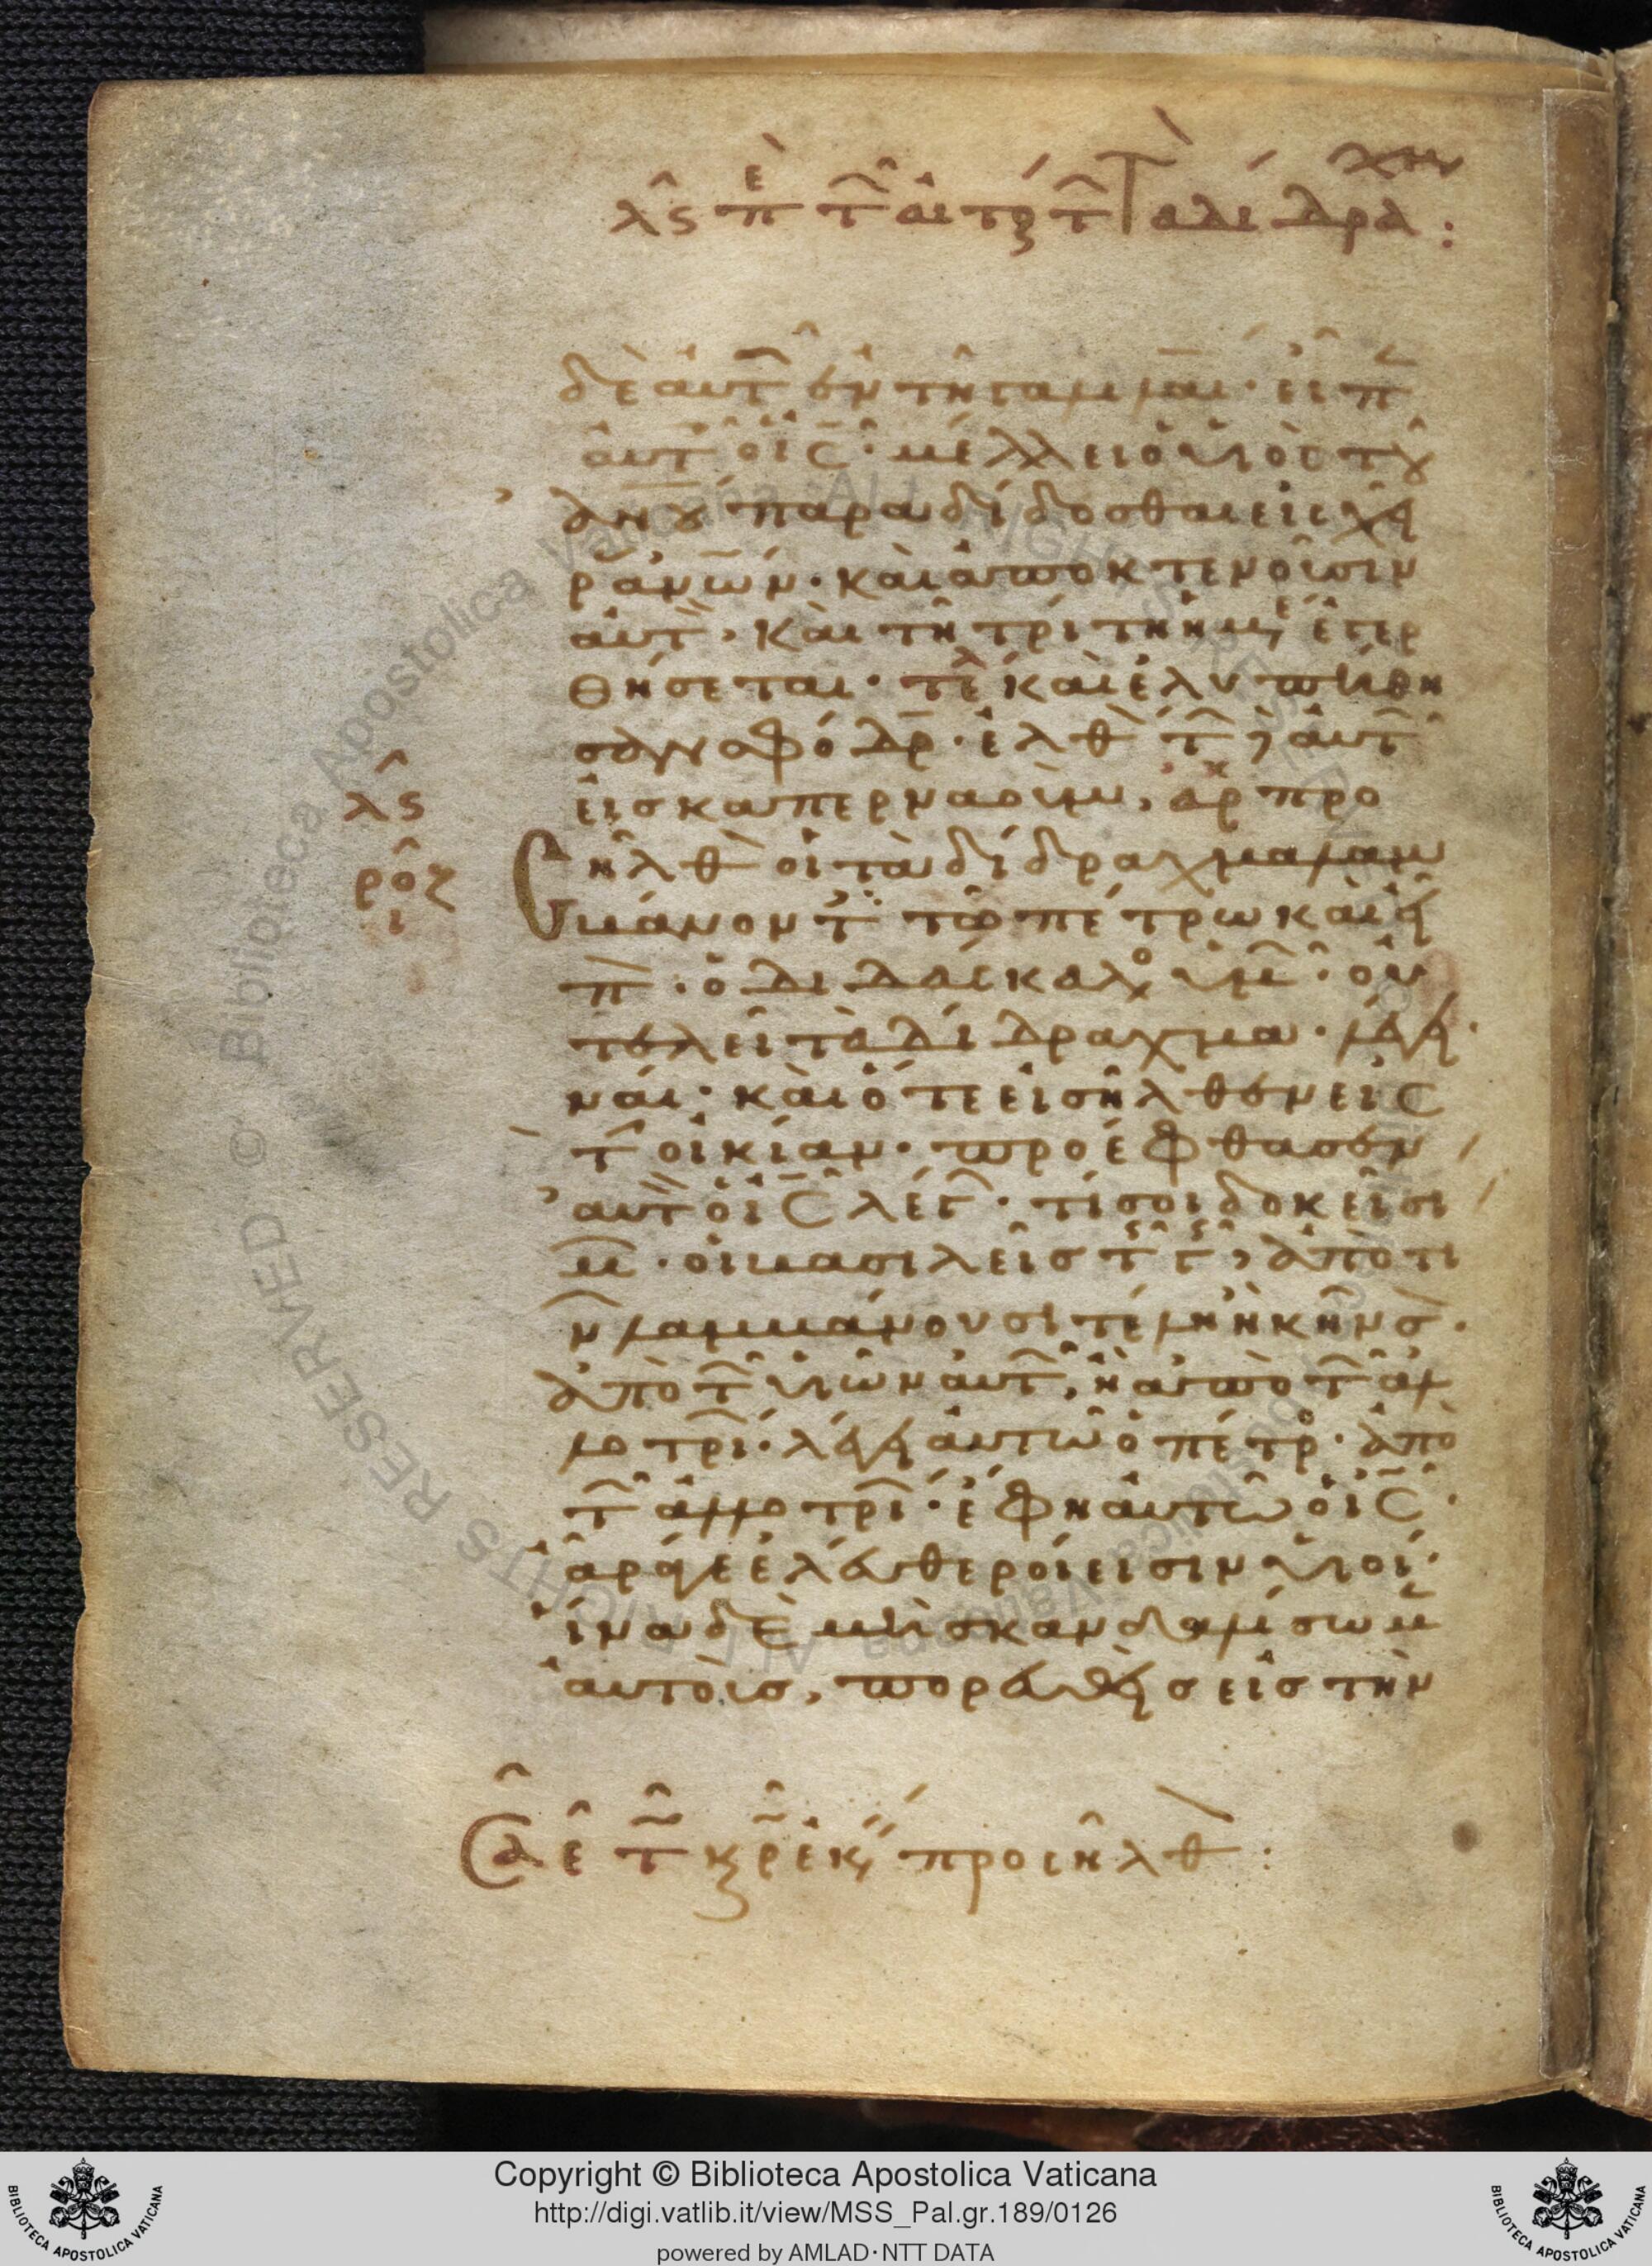 λϛ πε τ αιτο τ τα διδραχμ :
δὲ αυτ ἐν τῆ γαλιλαι · εἶπ
αὐτ ὁ ις · μέλλει ὁ υἱὸς τοῦ
ἀνου παραδίδοσθαι εἰς χεῖ
ρας ἀνων · καὶ ἀποκτενοῦσιν
αὐτ , καὶ τῆ τρίτη ἡμε ἐγερ
θήσεται · τελ καὶ ἐλυπήθη
σαν σφόδρ · ἐλθ τ δὲ αὐτ
εἰσ καπερναοὺμ , αρχ προ
λϛ
ροζ
ι
σῆλθ οἱ τὰ δίδραχμα λαμ
βάνοντ τῶ πέτρω καὶ εἶ
π · ὁ διδάσκαλο ὑμ · οὐ
τελεῖ τὰ δίδραχμα · λέγει ·
ναί · καὶ ὅτε εἰσῆλθεν εἰς
τ οἰκίαν · προέφθασεν
αὐτ ὁ ις λέγ · τί σοι δοκεῖ σι
μ · οἱ βασιλεῖσ τ γ , ἀπὸ τί
ν λαμβάνουσι τέλη ἢ κῆνσ .
ἀπὸ τ υἱῶν αὐτ , ἢ ἀπὸ τ ἀλ
λοτρι · λέγει αὐτῶ ὁ πέτρο · ἀπὸ
τ ἀλλοτρι · ἔφη αὐτῶ ὁ ις ·
ἄραγε ἐλεύθεροί εἰσιν υἱοί ·
ἵνα δὲ μὴ σκανδαλίσωμ
αὐτοὺσ , πορευθεὶσ εἰσ τὴν
τ κρ ἐκ προσῆλθ :
Copyright © Biblioteca Apostolica Vaticana
http://digi.vatlib.it/view/MSS_Pal.gr.189/0126
powered by AMLAD·NTT DATA
BIBLIOTECA APOSTOLICA VATICANA
BIBLIOTECA APOSTOLICA VATICANA